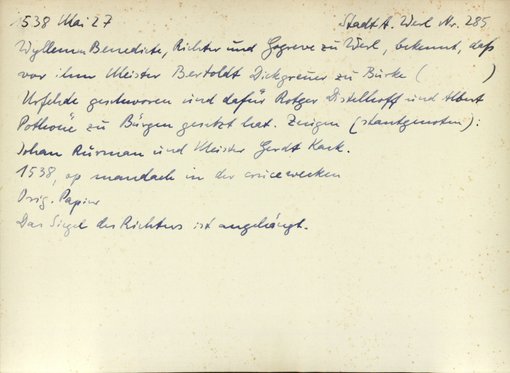 1538 Mai 27 Stadt A. Werl Nr. 285
Wyllem Benedicte, Richter und Gogreve zu Werl, bekennt, daß
vor ihm Meister Bertoldt Dickgreuer zu Büke ( )
Urfehde geschworen und dafür Rotger Distelhoff und Albert
Pothove zu Bürgen gesetzt hat. Zeugen (stantgenoten):
Johan Rurman und Meister Gerdt Kark.
1538, op mandach in der crucewecken
Orig. Papier
Das Siegel des Richters ist angehängt.